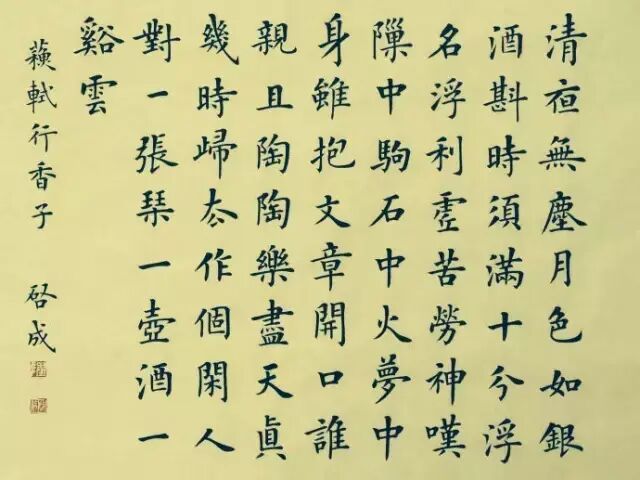 清夜無塵月色如銀
酒斟時須滿十分浮
名浮利虛苦勞神嘆
隟中駒石中火夢中
身雖抱文章開口誰
親且陶陶樂盡天眞
幾時歸去作個閑人
對一張琴一壺酒一
谿雲
蘓軾行香子 啓成